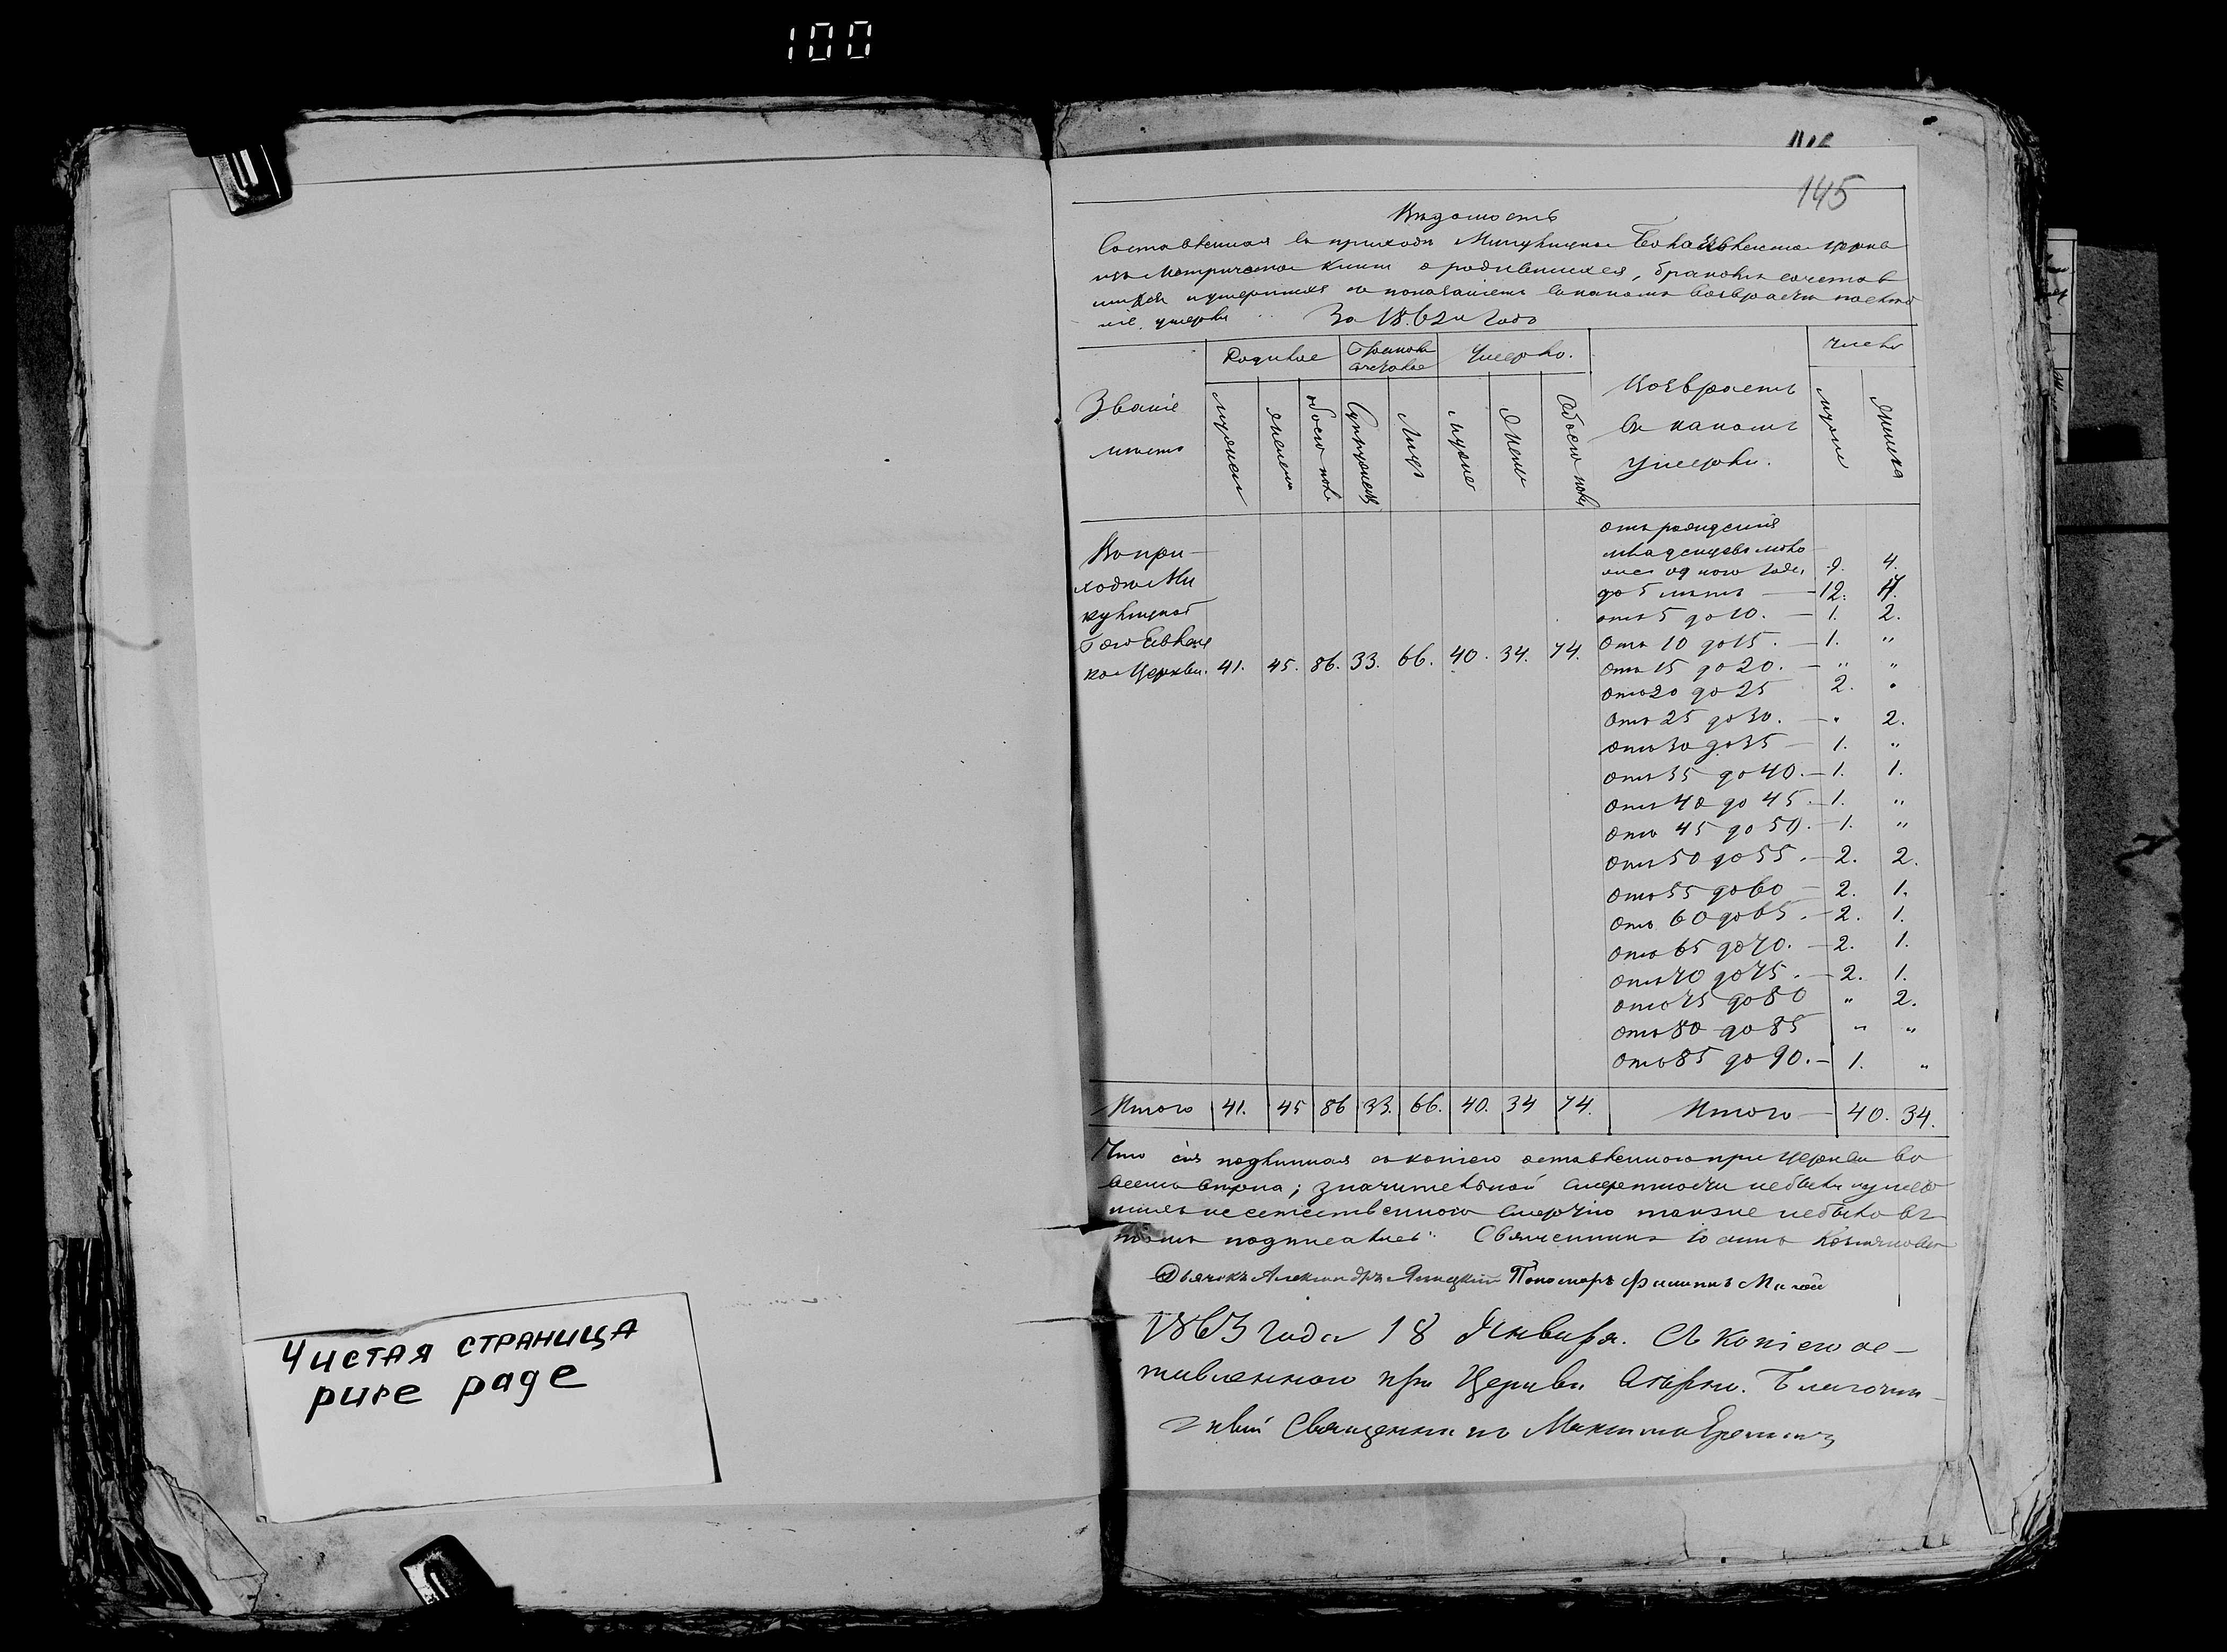 100
145
Вѣдомость
Составленная въ приходѣ Микулицкой церкви
изъ Метрической книги о родившихся, бракомъ сочетав
шихся и умершихъ съ показаніемъ въ какомъ возврасти
умерли За 1862й Годъ
Званіе мѣстъ
Родилось
Бракомъ сочеталось
Умерло.
Возврастъ въ какомъ умерли.
Число
мужеск
женска
обоего пола
Супружеств
Лицъ
мужес
женс
обоего пола
мужес
женска
отъ рожденія
младенцевъ
одного года 9. 4.
до 5 лѣтъ — 12. 17.
отъ 5 до 10. — 1. 2.
Отъ 10 до 15. — 1. "
Отъ 15 до 20. — " "
Отъ 20 до 25 2. "
Отъ 25 до 30. — " 2.
Отъ 30 до 35 — 1. "
Отъ 35 до 40. — 1. 1.
Отъ 40 до 45 — 1. "
Отъ 45 до 50. — 1. "
Отъ 50 до 55. — 2. 2.
Отъ 55 до 60 — 2. 1.
Отъ 60 до 65. — 2. 1.
Отъ 65 до 70. — 2. 1.
Отъ 70 до 75. — 2. 1.
Отъ 75 до 80 " 2.
Отъ 80 до 85 " "
Отъ 85 до 90. — 1. "
Во при-
ходѣ Ми
кулицкой
ко Церкви. 41. 45. 86. 33. 66. 40. 34. 74.
Итого 41. 45 86 33. 66. 40. 34 74. Итого — 40. 34.
Что сія подлинная съ копіею оставленною при Церкви во
всемъ вѣрна; значительной смертности небыло и умер
шихъ неестественною смертію также небыло въ
томъ подписались: Священникъ Іоаннъ
Дьячокъ Александръ Яницкій Пономарь Филиппъ
1863 года 18 Января. Съ копіею ос-
тавленною при Церкви вѣрно. Благочин-
ный Священникъ
Чистая страница
pure page